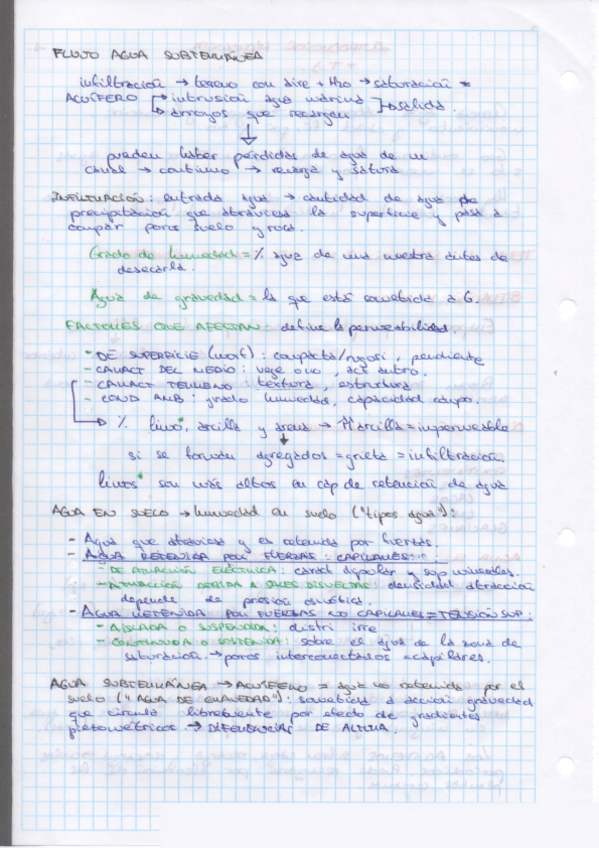 FLUJO AGUA SUBTERRÁNEA
infiltración → terreno con aire + H2O → saturación =
ACUÍFERO → intrusión agua marina → salida.
→ arroyos que recargan
pueden haber pérdidas de agua de un
cause → continuo → recarga y satura
INFILTRACIÓN: entrada agua → cantidad de agua de
precipitación que atraviesa la superficie y pasa a
ocupar poros suelo y roca.
Grado de humedad = % agua de una muestra antes de
desecarla.
Agua de gravedad = la que está sometida a G.
FACTORES QUE AFECTAN: define la permeabilidad.
- DE SUPERFICIE (morf): compacta/rugosi, pendiente
- CARACT DEL MEDIO: vege o no, act antro.
- CARACT TERRENO: textura, estructura
- COND AMB: grado humedad, capacidad campo.
→ % limo*, arcilla y arena → ↑↑ arcilla = impermeable
si se forman agregados = grieta = infiltración
limos* son más altos en cap de retención de agua
AGUA EN SUELO → humedad en suelo ("tipos agua"):
- Agua que atraviesa y es retenida por fuerzas.
- AGUA RETENIDA POR FUERZAS: CAPILARES:
- DE ATRACCIÓN ELÉCTRICA: caract dipolar y sup minerales.
- ATRACCIÓN DEBIDA A SALES DISUELTAS: densidad atracción
depende de presión osmótica.
- AGUA RETENIDA POR FUERZAS NO CAPILARES = TENSIÓN SUP:
- AISLADA O SUSPENDIDA: distri irre
- CONTINUADA O SOSTENIDA: sobre el agua de la zona de
saturación. → poros interconectados = capilares.
AGUA SUBTERRÁNEA → ACUÍFERO = agua no retenida por el
suelo ("AGUA DE GRAVEDAD"): sometida a acción gravedad
que circula libremente por efecto de gradientes
piezométricos → DIFERENCIAS DE ALTURA.